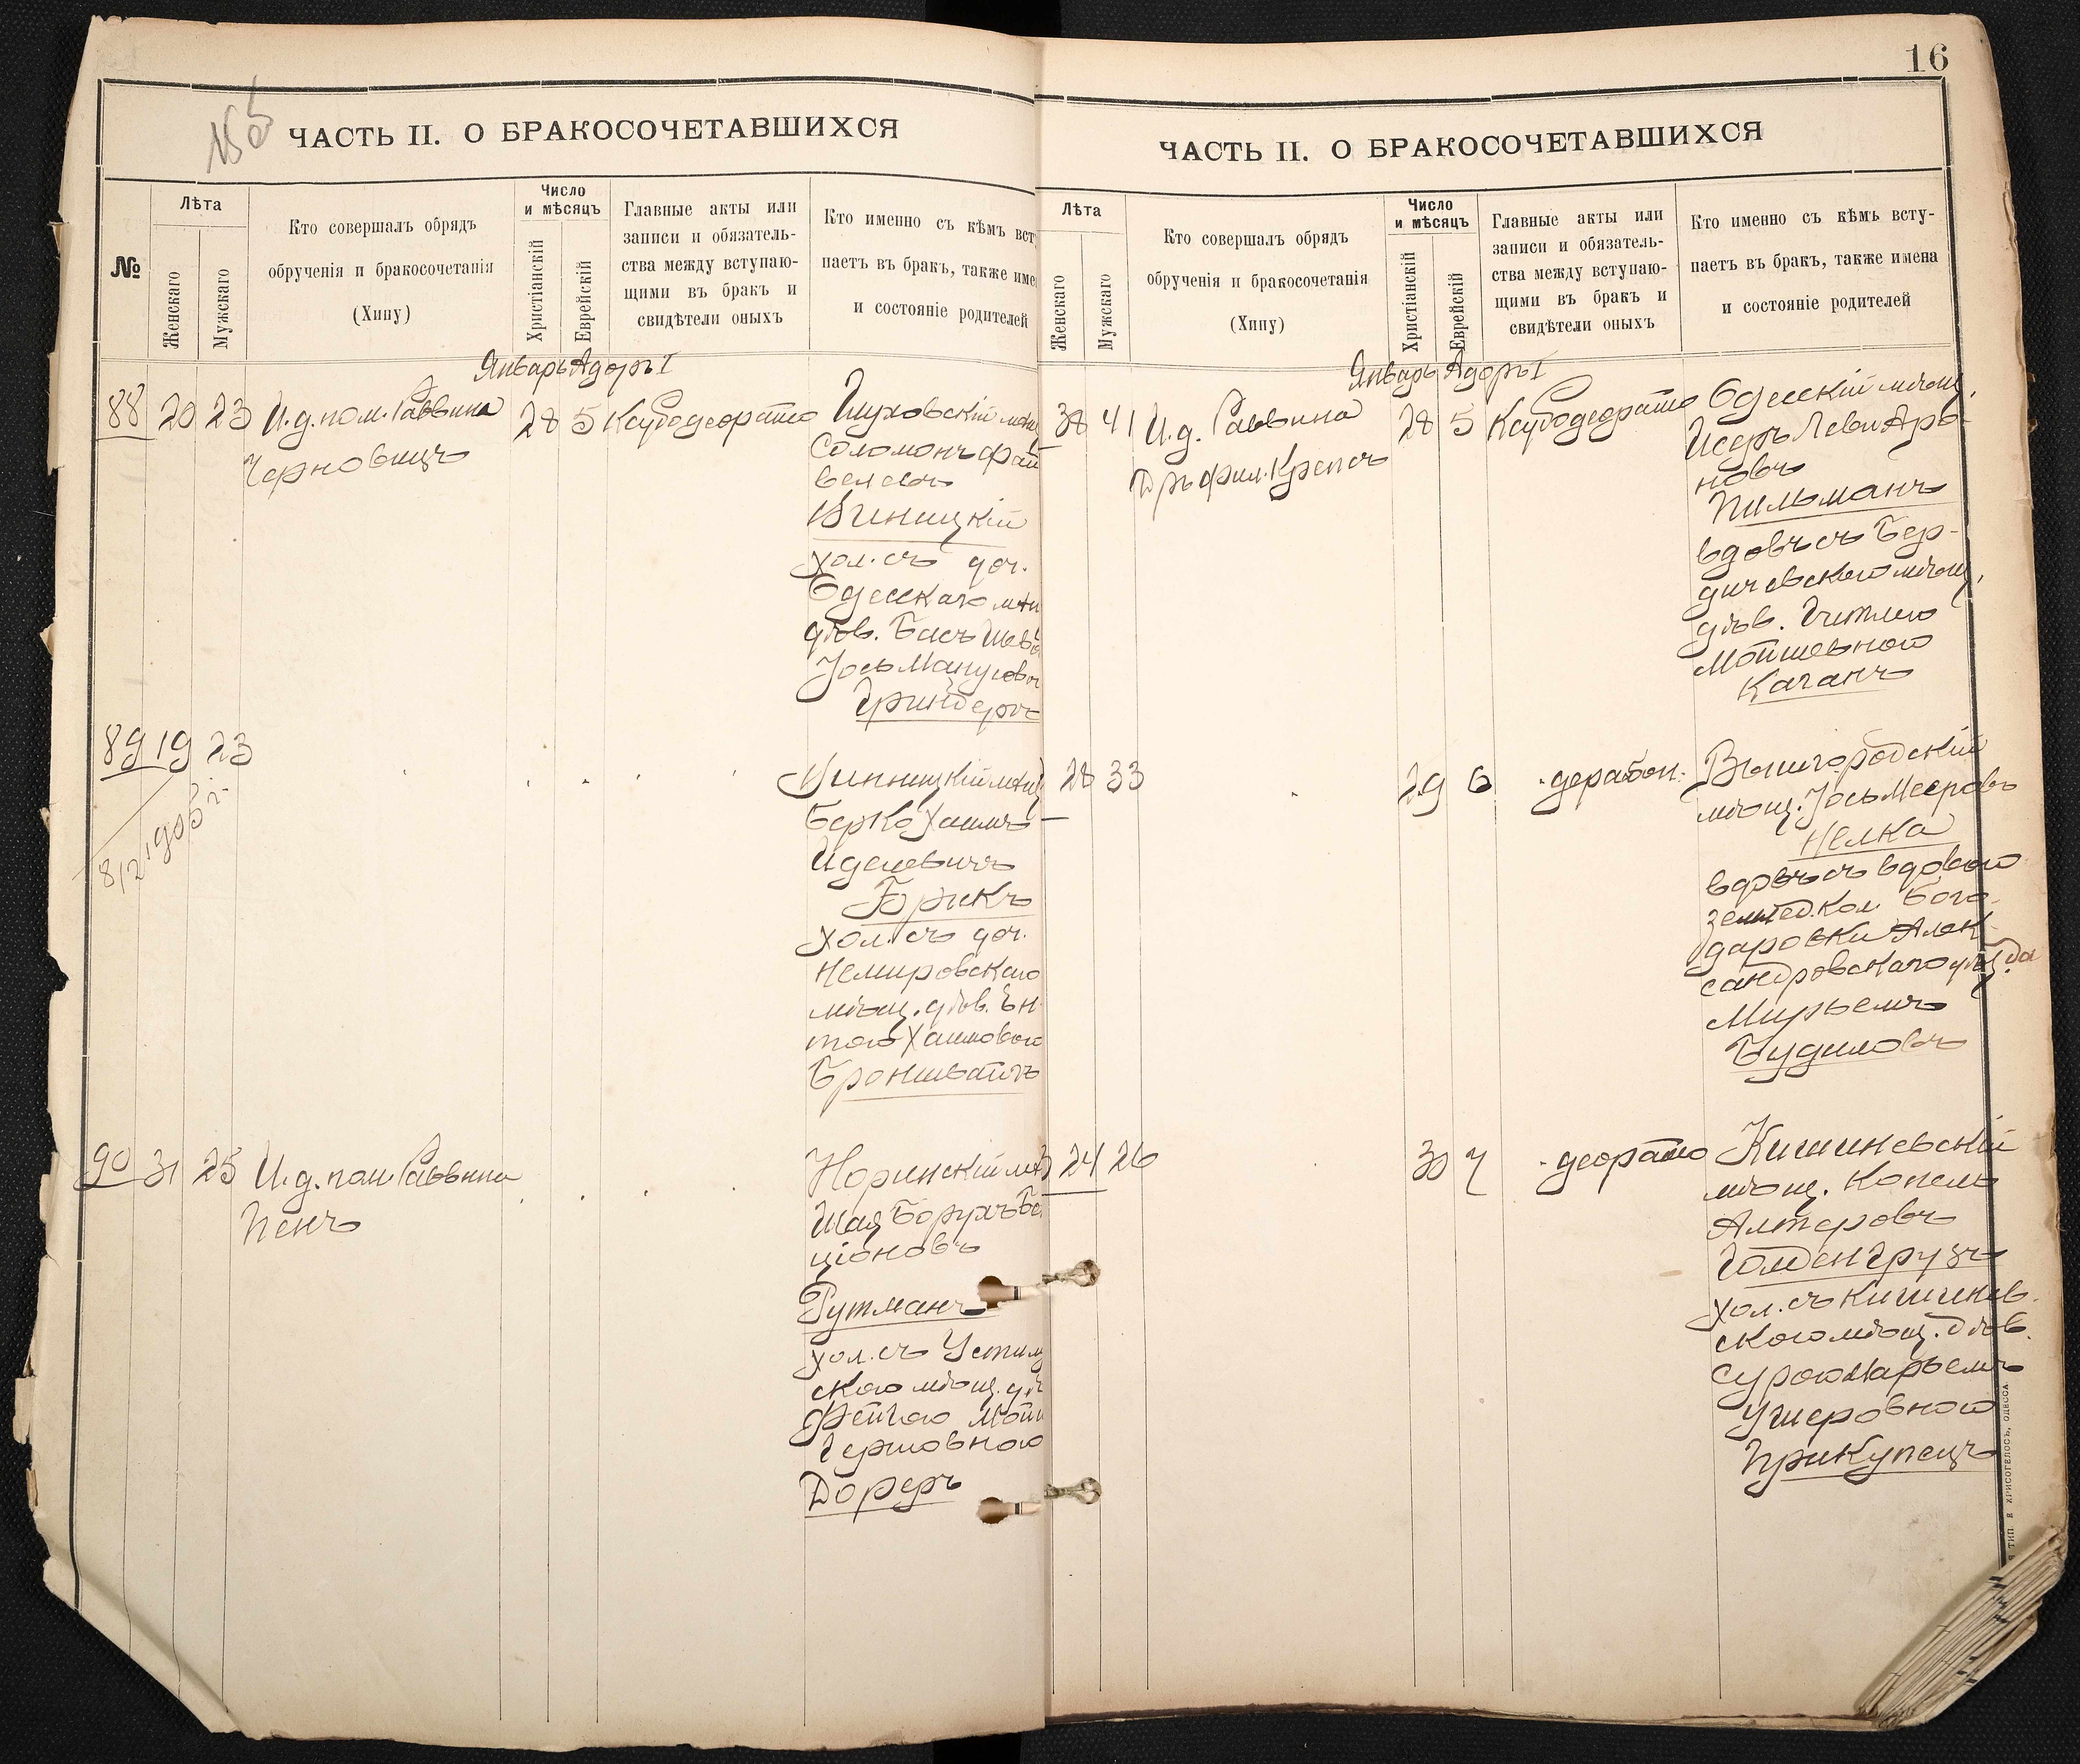 16
№ 5
ЧАСТЬ II. О БРАКОСОЧЕТАВШИХСЯ
№
Лѣта
Женскаго
Мужскаго
Кто совершалъ обрядъ
обрученія и бракосочетанія
(Хипу)
Число
и мѣсяцъ
Христіанскій
Еврейскій
Главные акты или
записи и обязатель-
ства между вступаю-
щими въ бракъ и
свидѣтели оныхъ
Кто именно съ кѣмъ вст
паетъ въ бракъ, также име
и состояніе родителей
Январь Адоръ I
88 20 23 И.д. пом. Раввина 28 5
Черновицъ
Глуховскій мѣщ
Соломонъ Фай
велевъ
Виницкій
хол. съ доч.
Одесскаго мѣщ
дѣв. Бася Шева
Іось Манусовъ
Гринбергъ
89 19 23
8/2 1905 г.
Винницкій мѣщ
Берко Хаимъ
Иделевичъ
Брикъ
хол. съ доч.
Немировскаго
мѣщ. дѣв. Эн-
тою Хаимовою
Бронштейнъ
90 31 25 И.д. пом. Раввина
Пенъ
Норинскій мѣ
Шая Борухъ Бе
ціоновъ
Рутманъ
хол. съ Устил
скою мѣщ. дѣ
Фейгою Мой
Гершовною
Дореръ
ЧАСТЬ II. О БРАКОСОЧЕТАВШИХСЯ
Лѣта
Женскаго
Мужскаго
Кто совершалъ обрядъ
обрученія и бракосочетанія
(Хипу)
Число
и мѣсяцъ
Христіанскій
Еврейскій
Главные акты или
записи и обязатель-
ства между вступаю-
щими въ бракъ и
свидѣтели оныхъ
Кто именно съ кѣмъ всту-
паетъ въ бракъ, также имена
и состояніе родителей
Январь Адоръ I
38 41 И.д. Раввина 28 5
Д-ръ фил. Крепсъ
Одесскій мѣщ.
Исеръ Леви Аро-
новъ
Пильманъ
вдовъ съ Бер-
дичевскою мѣщ.
дѣв. Гитлею
Мойшевною
Каганъ
28 33 29 6
Вышгородскій
мѣщ. Іось Мееровъ
Нелка
вдовъ съ вдовою
землед. кол. Бого-
даровки Алек-
сандровскаго уѣзда
Мирьемъ
Будиловъ
24 26 30 7
Кишиневскій
мѣщ. Копель
Алтеровъ
Голденгрузъ
хол. съ Кишинев-
скою мѣщ. дѣв.
Сурою Марьемъ
Ушеровною
Прикупецъ
ТИП. Е. ХРИСОГЕЛОСЪ, ОДЕССА